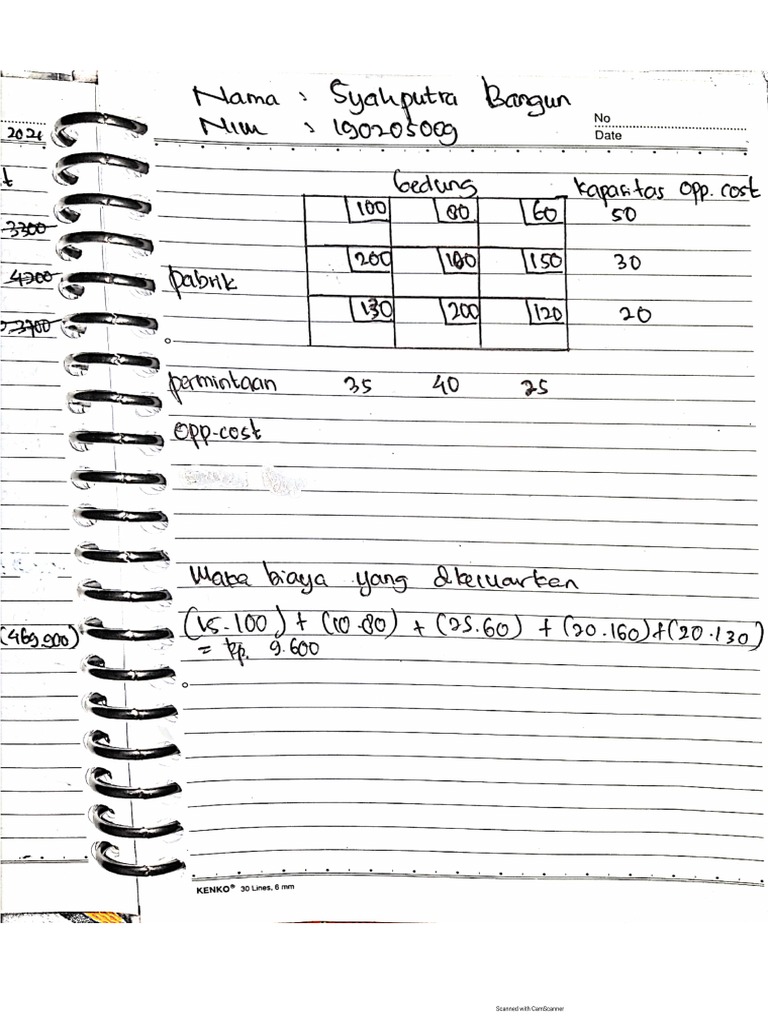 Nama : Syahputra Bangun
Nim : 190205009
No
Date
2021
Gedung kapasitas Opp. cost
100 80 60 50
3300
200 100 150 30
4200
pabrik
130 200 120 20
3700
permintaan 35 40 25
Opp-cost
Maka biaya yang dikeluarkan
(15.100) + (10.80) + (25.60) + (20.160) + (20.130)
(469.900)
= Rp. 9.600
KENKO® 30 Lines, 6 mm
Scanned with CamScanner